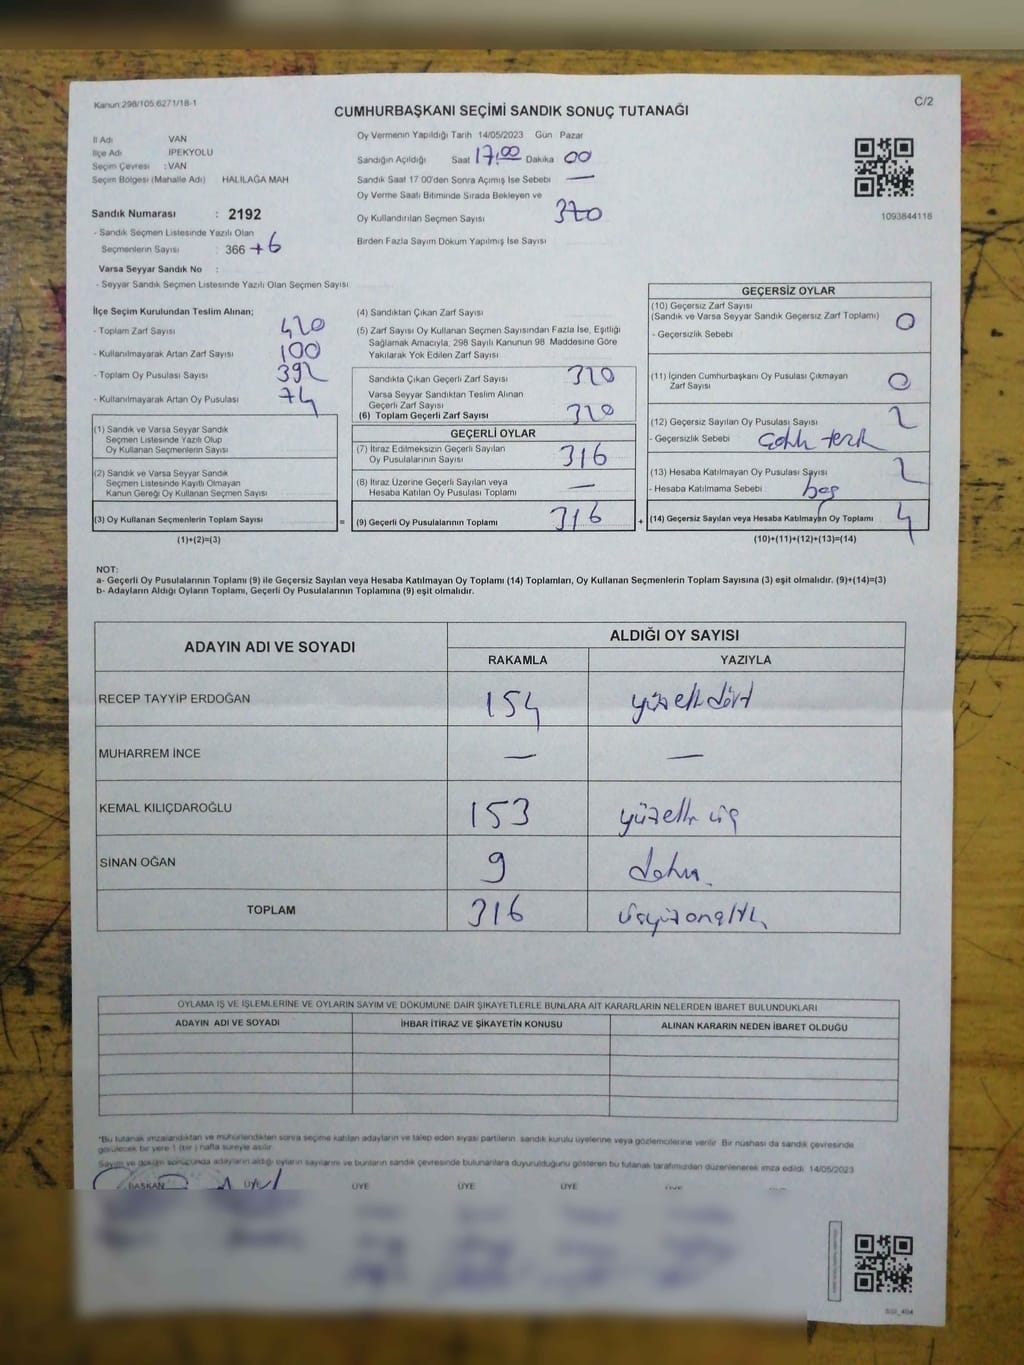 Kanun 298/105,6271/18-1
C/2
CUMHURBAŞKANI SEÇİMİ SANDIK SONUÇ TUTANAĞI
İl Adı VAN
İlçe Adı İPEKYOLU
Seçim Çevresi : VAN
Seçim Bölgesi (Mahalle Adı) HALİLAĞA MAH
Sandık Numarası : 2192
- Sandık Seçmen Listesinde Yazılı Olan
Seçmenlerin Sayısı : 366 +6
Varsa Seyyar Sandık No :
- Seyyar Sandık Seçmen Listesinde Yazılı Olan Seçmen Sayısı
Oy Vermenin Yapıldığı Tarih 14/05/2023 Gün Pazar
Sandığın Açıldığı Saat 17:00 Dakika 00
Sandık Saat 17 00'den Sonra Açımış İse Sebebi —
Oy Verme Saati Bitiminde Sırada Bekleyen ve
Oy Kullandırılan Seçmen Sayısı 320
Birden Fazla Sayım Döküm Yapılmış İse Sayısı
1093844118
İlçe Seçim Kurulundan Teslim Alınan;
- Toplam Zarf Sayısı 420
- Kullanılmayarak Artan Zarf Sayısı 100
- Toplam Oy Pusulası Sayısı 392
- Kullanılmayarak Artan Oy Pusulası 74
(1) Sandık ve Varsa Seyyar Sandık
Seçmen Listesinde Yazılı Olup
Oy Kullanan Seçmenlerin Sayısı
(2) Sandık ve Varsa Seyyar Sandık
Seçmen Listesinde Kayıtlı Olmayan
Kanun Gereği Oy Kullanan Seçmen Sayısı
(3) Oy Kullanan Seçmenlerin Toplam Sayısı
(1)+(2)=(3)
=
(4) Sandıktan Çıkan Zarf Sayısı
(5) Zarf Sayısı Oy Kullanan Seçmen Sayısından Fazla İse, Eşitliği
Sağlamak Amacıyla, 298 Sayılı Kanunun 98 Maddesine Göre
Yakılarak Yok Edilen Zarf Sayısı
Sandıkta Çıkan Geçerli Zarf Sayısı 320
Varsa Seyyar Sandıktan Teslim Alınan
Geçerli Zarf Sayısı
(6) Toplam Geçerli Zarf Sayısı 320
GEÇERLİ OYLAR
(7) İtiraz Edilmeksizin Geçerli Sayılan
Oy Pusulalarının Sayısı 316
(8) İtiraz Üzerine Geçerli Sayılan veya
Hesaba Katılan Oy Pusulası Toplamı —
(9) Geçerli Oy Pusulalarının Toplamı 316
+
GEÇERSİZ OYLAR
(10) Geçersiz Zarf Sayısı
(Sandık ve Varsa Seyyar Sandık Geçersiz Zarf Toplamı) 0
- Geçersizlik Sebebi
(11) İçinden Cumhurbaşkanı Oy Pusulası Çıkmayan
Zarf Sayısı 0
(12) Geçersiz Sayılan Oy Pusulası Sayısı 2
- Geçersizlik Sebebi
(13) Hesaba Katılmayan Oy Pusulası Sayısı 2
- Hesaba Katılmama Sebebi boş
(14) Geçersiz Sayılan veya Hesaba Katılmayan Oy Toplamı 4
(10)+(11)+(12)+(13)=(14)
NOT:
a- Geçerli Oy Pusulalarının Toplamı (9) ile Geçersiz Sayılan veya Hesaba Katılmayan Oy Toplamı (14) Toplamları, Oy Kullanan Seçmenlerin Toplam Sayısına (3) eşit olmalıdır. (9)+(14)=(3)
b- Adayların Aldığı Oyların Toplamı, Geçerli Oy Pusulalarının Toplamına (9) eşit olmalıdır.
ADAYIN ADI VE SOYADI
ALDIĞI OY SAYISI
RAKAMLA YAZIYLA
RECEP TAYYİP ERDOĞAN 154 yüzellidört
MUHARREM İNCE — —
KEMAL KILIÇDAROĞLU 153 yüzelli üç
SİNAN OĞAN 9 dokuz
TOPLAM 316 üçyüzonaltı
OYLAMA İŞ VE İŞLEMLERİNE VE OYLARIN SAYIM VE DÖKÜMÜNE DAİR ŞİKAYETLERLE BUNLARA AİT KARARLARIN NELERDEN İBARET BULUNDUKLARI
ADAYIN ADI VE SOYADI İHBAR İTİRAZ VE ŞİKAYETİN KONUSU ALINAN KARARIN NEDEN İBARET OLDUĞU
*Bu tutanak imzalandıktan ve mühürlendikten sonra seçime katılan adayların ve talep eden siyasi partilerin sandık kurulu üyelerine veya gözlemcilerine verilir Bir nüshası da sandık çevresinde
görülecek bir yere 1 (bir) hafta süreyle asılır
Sayım ve döküm sonucunda adayların aldığı oyların sayılarını ve bunların sandık çevresinde bulunanlara duyurulduğunu gösteren bu tutanak tarafımızdan düzenlenerek imza edildi 14/05/2023
BAŞKAN ÜYE ÜYE ÜYE ÜYE